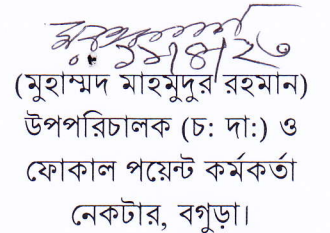 (মুহাম্মদ মাহমুদুর রহমান)
উপপরিচালক (চ: দা:) ও
ফোকাল পয়েন্ট কর্মকর্তা
নেকটার, বগুড়া।